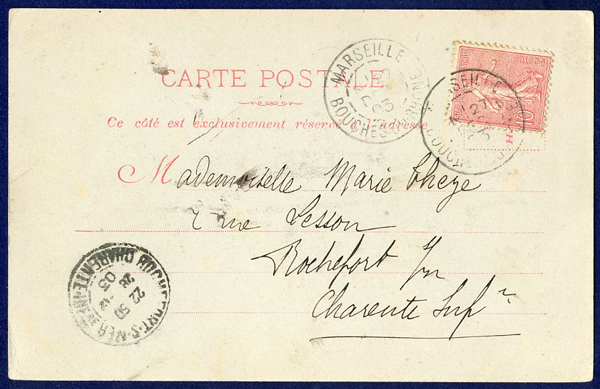 CARTE POSTALE
Ce côté est exclusivement réservé à l'adresse
Mademoiselle Marie Cheze
2 rue Lesson
Rochefort s/m
Charente Infre
MARSEILLE
BOUCHES DU RHONE
03
MARSEILLE
BOUCHES
ROCHEFORT-S-MER
CHARENTE INFRE
22 50
03